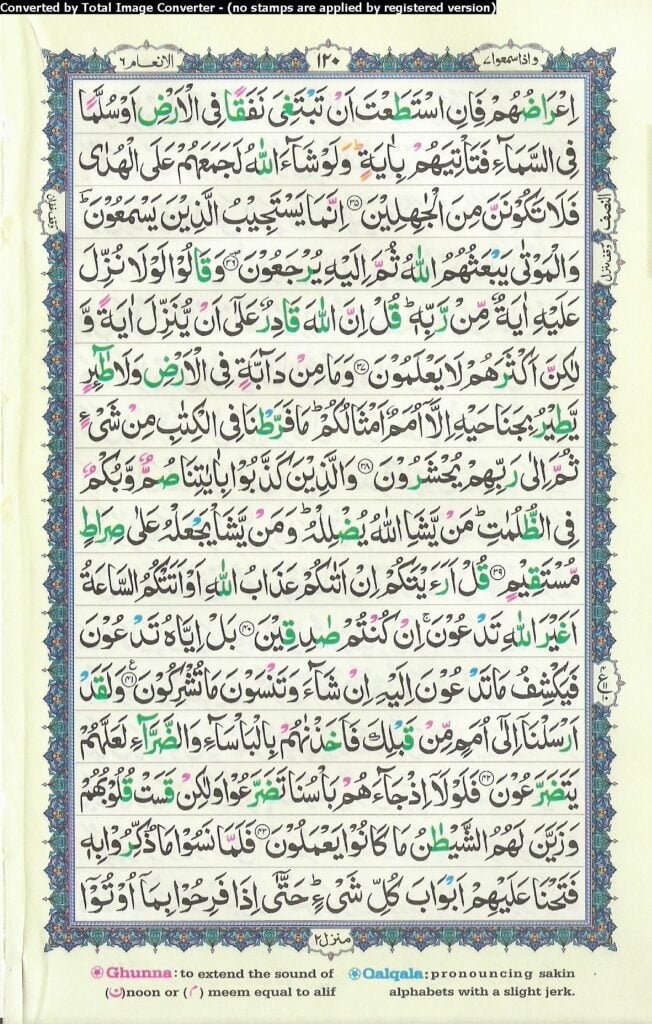 Converted by Total Image Converter - (no stamps are applied by registered version)
الانعام ٦
١٢٠
و اذا سمعوا ٧
اِعْرَاضُهُمْ فَاِنِ اسْتَطَعْتَ اَنْ تَبْتَغِیَ نَفَقًا فِی الْاَرْضِ اَوْسُلَّمًا
فِی السَّمَآءِ فَتَاْتِیَهُمْ بِاٰیَةٍ ؕ وَلَوْ شَآءَ اللّٰهُ لَجَمَعَهُمْ عَلَی الْهُدٰی
فَلَا تَكُوْنَنَّ مِنَ الْجٰهِلِیْنَ ﴿۳۵﴾ اِنَّمَا یَسْتَجِیْبُ الَّذِیْنَ یَسْمَعُوْنَ ؕ
وَالْمَوْتٰی یَبْعَثُهُمُ اللّٰهُ ثُمَّ اِلَیْهِ یُرْجَعُوْنَ ﴿۳۶﴾ وَقَالُوْا لَوْلَا نُزِّلَ
عَلَیْهِ اٰیَةٌ مِّنْ رَّبِّهٖ ؕ قُلْ اِنَّ اللّٰهَ قَادِرٌ عَلٰۤی اَنْ یُّنَزِّلَ اٰیَةً وَّ
لٰكِنَّ اَكْثَرَهُمْ لَا یَعْلَمُوْنَ ﴿۳۷﴾ وَمَا مِنْ دَآبَّةٍ فِی الْاَرْضِ وَلَا طٰٓئِرٍ
یَّطِیْرُ بِجَنَاحَیْهِ اِلَّاۤ اُمَمٌ اَمْثَالُكُمْ ؕ مَا فَرَّطْنَا فِی الْكِتٰبِ مِنْ شَیْءٍ
ثُمَّ اِلٰی رَبِّهِمْ یُحْشَرُوْنَ ﴿۳۸﴾ وَالَّذِیْنَ كَذَّبُوْا بِاٰیٰتِنَا صُمٌّ وَّبُكْمٌ
فِی الظُّلُمٰتِ ؕ مَنْ یَّشَاِ اللّٰهُ یُضْلِلْهُ ؕ وَمَنْ یَّشَاْ یَجْعَلْهُ عَلٰی صِرَاطٍ
مُّسْتَقِیْمٍ ﴿۳۹﴾ قُلْ اَرَءَیْتَكُمْ اِنْ اَتٰىكُمْ عَذَابُ اللّٰهِ اَوْ اَتَتْكُمُ السَّاعَةُ
اَغَیْرَ اللّٰهِ تَدْعُوْنَ ۚ اِنْ كُنْتُمْ صٰدِقِیْنَ ﴿۴۰﴾ بَلْ اِیَّاهُ تَدْعُوْنَ
فَیَكْشِفُ مَا تَدْعُوْنَ اِلَیْهِ اِنْ شَآءَ وَتَنْسَوْنَ مَا تُشْرِكُوْنَ ﴿۴۱﴾ وَلَقَدْ
اَرْسَلْنَاۤ اِلٰۤی اُمَمٍ مِّنْ قَبْلِكَ فَاَخَذْنٰهُمْ بِالْبَاْسَآءِ وَالضَّرَّآءِ لَعَلَّهُمْ
یَتَضَرَّعُوْنَ ﴿۴۲﴾ فَلَوْلَاۤ اِذْ جَآءَهُمْ بَاْسُنَا تَضَرَّعُوْا وَلٰكِنْ قَسَتْ قُلُوْبُهُمْ
وَزَیَّنَ لَهُمُ الشَّیْطٰنُ مَا كَانُوْا یَعْمَلُوْنَ ﴿۴۳﴾ فَلَمَّا نَسُوْا مَا ذُكِّرُوْا بِهٖ
فَتَحْنَا عَلَیْهِمْ اَبْوَابَ كُلِّ شَیْءٍ ؕ حَتّٰۤی اِذَا فَرِحُوْا بِمَاۤ اُوْتُوْۤا
منزل ٢
Ghunna: to extend the sound of
(ن)noon or (م) meem equal to alif
Qalqala: pronouncing sakin
alphabets with a slight jerk.